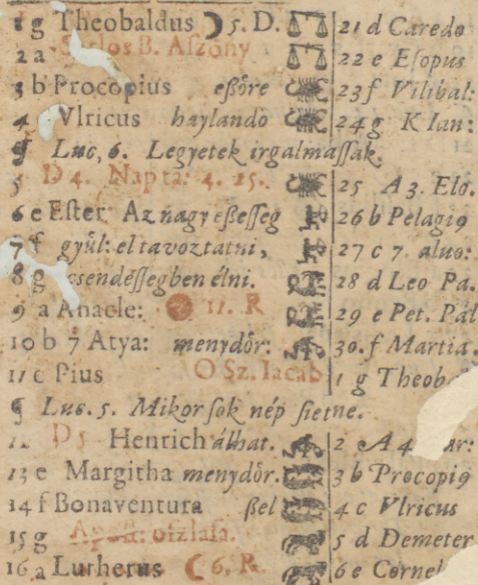 1 g Theobaldus ☽ 5. D. ♎ 21 d Caredo
2 a Sarlos B. Aſzony ♎ 22 e Eſopus
3 b Procopius eßöre ♏ 23 f Vilibal:
4 Vlricus haylando ♏ 24 g K Ian:
¶ Luc, 6. Legyetek irgalmaſſak.
5 D 4. Napta: 4. 25. ♏ 25 A 3. Elo.
6 e Eſter Az nagy eßeſſeg 26 b Pelagi9
7 f gyűl: el tavoztatni, 27 c 7. aluo:
8 g csendéſſegben élni. 28 d Leo Pa.
9 a Anacle: 11. R 29 e Pet. Pál
10 b 7 Atya: menydőr: 30. f Martia.
11 c Pius O Sz. Iacab 1 g Theob
¶ Luc. 5. Mikor ſok nép ſietne.
12 D 5 Henrich álhat. 2 A 4 ar:
13 e Margitha menydőr. 3 b Procopi9
14 f Bonaventura ßel 4 c Vlricus
15 g Apoſt: oſzlaſa. 5 d Demeter
16 a Lutherus ☾ 6. R. 6 e Cornel